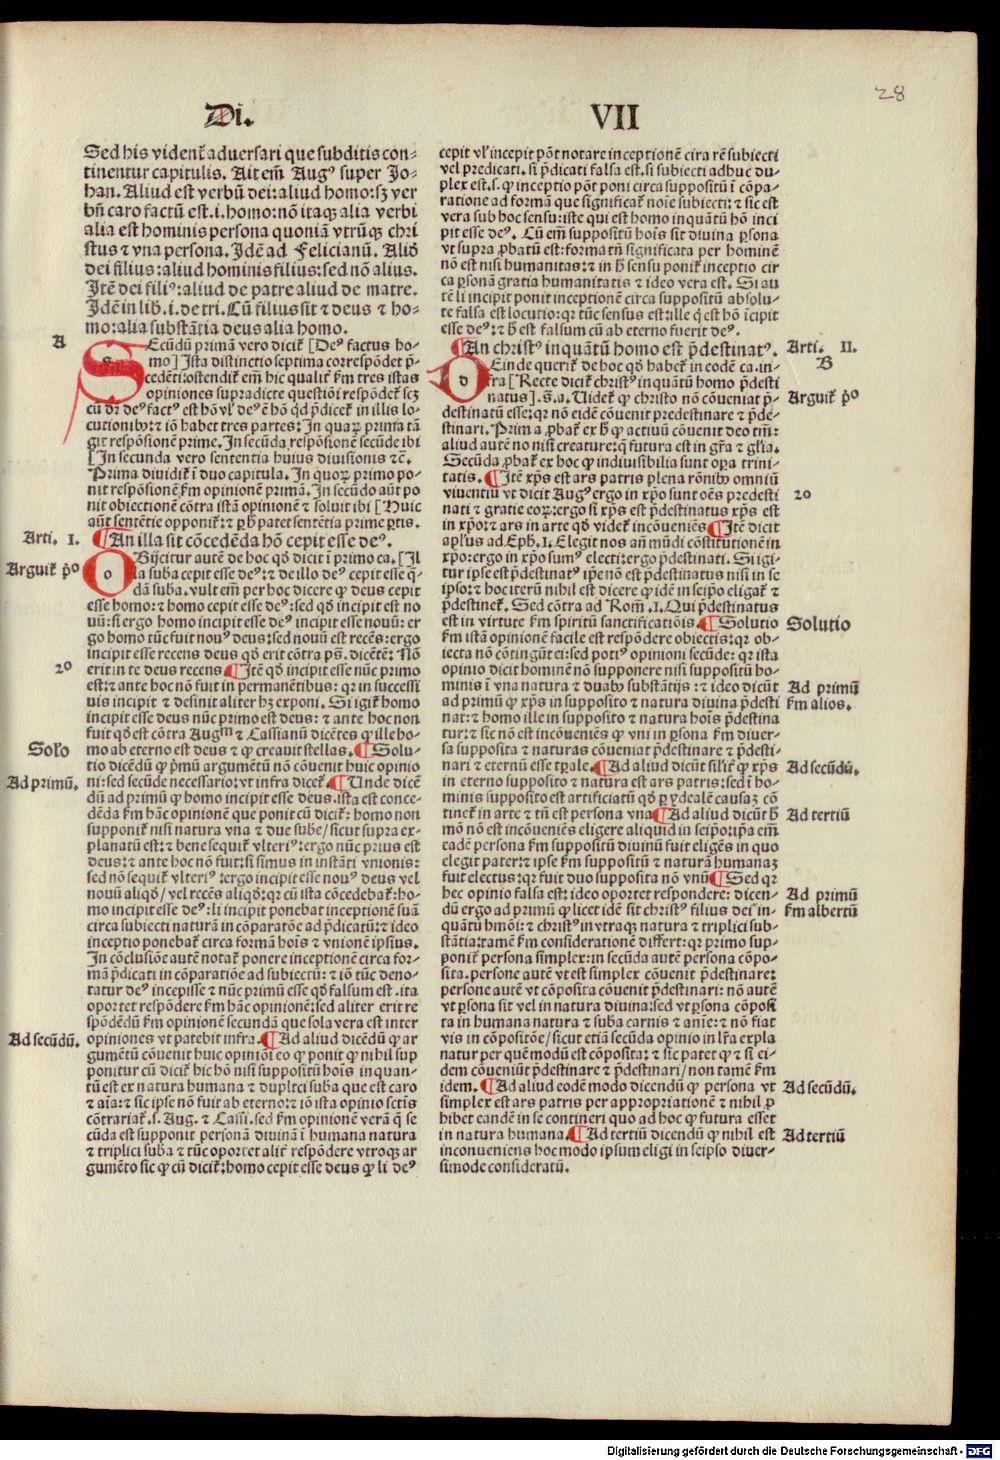 28
Di.
VII
Sed his vident᷑ adversari que subditis con⸗
tinentur capitulis. Ait em̄ Augꝰ super Jo⸗
han. Aliud est verbū dei: aliud homo: sꝫ ver
bū caro factū est .i. homo: nō itaqꝫ alia verbi
alia est hominis persona quoniā vtrūqꝫ chri
stus ⁊ vna persona. Idē ad Felicianū. Aliꝰ
dei filius: aliud hominis filius: sed nō alius.
Itē dei filiꝰ: aliud de patre aliud de matre.
Idē in lib. i. de tri. Cū filius sit ⁊ deus ⁊ ho⸗
mo: alia substātia deus alia homo.
A
SEcūdū primam vero dicit᷑ [Deꝰ factus ho⸗
mo] Ista distinctio septima correspōdet p̄⸗
cedēti: ostendit᷑ em̄ hic qualit᷑ ẜm tres istas
opiniones supradicte questiōi respōdet᷑ scꝫ
cū dr̄ deꝰ factꝰ est hō vl᷑ deꝰ ē hō qd̄ p̄dicet᷑ in illis lo⸗
cutionibꝫ: ⁊ iō habet tres partes: In quaꝝ prima tā
git respōsionē prime. In secūda respōsionē secūde ibi
[In secunda vero sententia huius divisionis ⁊c̄.
Prima dividit᷑ ī duo capitula. In quoꝝ primo po⸗
nit respōsionē ẜm opinionē primā. In secūdo aūt po
nit obiectionē cōtra istā opinionē ⁊ soluit ibi [Huic
aūt sentētie opponit᷑: ⁊ ꝑ h̄ patet sentētia prime ꝑtis.
Arti. I.
¶An illa sit cōcedēda hō cepit esse deꝰ.
Arguit᷑ pº
OBijcitur autē de hoc qd̄ dicit ī primo ca. [Il
la suba cepit esse deꝰ: ⁊ de illo deꝰ cepit esse q̄⸗
dā suba. vult em̄ per hoc dicere ꝙ deus cepit
esse homo: ⁊ homo cepit esse deꝰ: sed qd̄ incipit est no
vū: si ergo homo incipit esse deꝰ incipit esse novū: er
go homo tūc fuit novꝰ deus: sed novū est recēs: ergo
incipit esse recens deus qd̄ erit cōtra ps̄. dicētē: Nō
2º
erit in te deus recens ¶Itē qd̄ incipit esse nūc primo
est: ⁊ ante hoc nō fuit in permanētibus: qꝛ in successi
vis incipit ⁊ desinit aliter hꝫ exponi. Si igit᷑ homo
incipit esse deus nūc primo est deus: ⁊ ante hoc non
fuit qd̄ est cōtra Augᵐ ⁊ Cassianū dicētes ꝙ ille ho⸗
Solo
mo ab eterno est deus ⁊ ꝙ creavit stellas. ¶Solu⸗
tio dicēdū ꝙ p̄mū argumētū nō cōvenit huic opinio
Ad primū.
ni: sed secūde necessario: vt infra dicet᷑. ¶Unde dicē
dū ad primū ꝙ homo incipit esse deus. ista est conce⸗
dēda ẜm hāc opinionē que ponit cū dicit᷑: homo non
supponit᷑ nisi natura vna ⁊ due sube/ sicut supra ex⸗
planatū est: ⁊ bene sequit᷑ vlteriꝰ: ergo nūc prius est
deus: ⁊ ante hoc nō fuit: si simus in instāti vnionis:
sed nō sequit᷑ vlteriꝰ: ergo incipit esse novꝰ deus vel
novū aliqd̄/ vel recēs aliqd̄: qꝛ cū ista cōcedebat᷑: ho⸗
mo incipit esse deꝰ: li incipit ponebat inceptionē suā
circa subiecti naturā in cōparatōe ad p̄dicatū: ⁊ ideo
inceptio ponebat᷑ circa formā hoīs ⁊ vnionē ipsius.
In cōclusiōe autē notat᷑ ponere inceptionē circa for⸗
mā p̄dicati in cōparatiōe ad subiectū: ⁊ iō tūc deno⸗
tatur deꝰ incepisse ⁊ nūc primū esse qd̄ falsum est. ita
oportet respōdere ẜm hāc opinionē: sed aliter erit re
spōdēdū ẜm opinionē secundā que sola vera est inter
Ad secūdū.
opiniones vt patebit infra. ¶Ad aliud dicēdū ꝙ ar
gumētū cōvenit huic opiniōi eo ꝙ ponit ꝙ nihil sup
ponitur cū dicit᷑ hic hō nisi suppositū hoīs inquan⸗
tū est ex natura humana ⁊ duplici suba que est caro
⁊ aīa: ⁊ sic ipse nō fuit ab eterno: ⁊ iō ista opinio sctīs
cōtrariat᷑ .s. Aug. ⁊ Cassi. sed ẜm opinionē verā q̄ se
cūda est supponit personā divinā ī humana natura
⁊ triplici suba ⁊ tūc oportet alit᷑ respōdere vtroqꝫ ar
gumēto sic ꝙ cū dicit᷑: homo cepit esse deus ꝙ li deꝰ
cepit vl᷑ incepit pōt notare inceptionē cira rē subiecti
vel predicati. si p̄dicati falsa est. si subiecti adhuc du⸗
plex est .s. ꝙ inceptio pōt poni circa suppositū ī cōpa⸗
ratione ad formā que significat᷑ noīe subiecti: ⁊ sic est
vera sub hoc sensu: iste qui est homo inquātū hō inci
pit esse deꝰ. Cū em̄ suppositū hoīs sit divina ꝑsona
vt supra ꝓbatū est: forma tn̄ significata per hominē
nō est nisi humanitas: ⁊ in h̄ sensu ponit᷑ inceptio cir
ca ꝑsonā gratia humanitatis ⁊ ideo vera est. Si au
tē li incipit ponit inceptionē circa suppositū absolu⸗
te falsa est locutio: qꝛ tūc sensus est: ille q̄ est hō īcipit
esse deꝰ: ⁊ h̄ est falsum cū ab eterno fuerit deꝰ.
Arti. II.
¶An christꝰ inquātū homo est p̄destinatꝰ.
B
DEinde querit᷑ de hoc qd̄ habet᷑ in eodē ca. in⸗
fra [Recte dicit᷑ christꝰ inquātū homo p̄desti
Arguit᷑ pº
natus] .s. a. Videt᷑ ꝙ christo nō cōveniat p̄⸗
destinatū esse: qꝛ nō eidē cōvenit predestinare ⁊ p̄de⸗
stinari. Prima ꝓbat᷑ ex h̄ ꝙ activū cōvenit deo tm̄:
aliud autē no nisi creature: q̄ futura est in gr̄a ⁊ gl̄ia.
Secūda ꝓbat᷑ ex hoc ꝙ indivisibilia sunt oꝑa trini⸗
tatis. ¶Itē xp̄s est ars patris plena rōnibꝫ omniū
2º
viventiū vt dicit Augꝰ ergo in xp̄o sunt oēs predesti
nati ⁊ gratie eoꝝ: ergo si xp̄s est p̄destinatus xp̄s est
in xp̄o: ⁊ ars in arte qd̄ videt᷑ incōveniēs ¶Itē dicit
apl̄us ad Eph. I. Elegit nos añ mūdi cōstitutionē in
xp̄o: ergo in xp̄o sumꝰ electi: ergo p̄destinati. Si igi⸗
tur ipse est p̄destinatꝰ ip̄e nō est p̄destinatus nisi in se
ipso: ⁊ hoc iterū nihil est dicere ꝙ idē in seip̄o eligat᷑ ⁊
p̄destinet᷑. Sed cōtra ad Rom̄. I. Qui p̄destinatus
Solutio
est in virtute ẜm spiritū sanctificatiōis. ¶Solutio
ẜm istā opinionē facile est respōdere obiectis: qꝛ ob⸗
iecta nō cōtingūt ei: sed potiꝰ opinioni secūde: qꝛ ista
opinio dicit hominē nō supponere nisi suppositū ho⸗
Ad primū
ẜm alios.
minis ī vna natura ⁊ duabꝫ substātijs: ⁊ ideo dicūt
ad primū ꝙ xp̄s in supposito ⁊ natura divina p̄desti
nat: ⁊ homo ille in supposito ⁊ natura hoīs p̄destina
tur: ⁊ sic nō est incōveniēs ꝙ vni in ꝑsona ẜm diver⸗
sa supposita ⁊ naturas cōveniat p̄destinare ⁊ p̄desti⸗
Ad secūdū.
nari ⁊ eternū esse tꝑale. ¶Ad aliud dicūt sil̄it᷑ ꝙ xp̄s
in eterno supposito ⁊ natura est ars patris: sed ī ho⸗
minis supposito est artificiatū qd̄ ꝑ ydealē causaꝫ cō
Ad tertiū
tinet᷑ in arte ⁊ tn̄ est persona vna ¶Ad aliud dicūt h̄
mō nō est incōveniēs eligere aliquid in seip̄o: ip̄a em̄
eadē persona ẜm suppositū divinū fuit eligēs in quo
elegit pater: ⁊ ipse ẜm suppositū ⁊ naturā humanaꝫ
fuit electus: qꝛ fuit duo supposita nō vnū ¶Sed qꝛ
Ad primū
ẜm albertū
hec opinio falsa est: ideo oportet respondere: dicen⸗
dū ergo ad primū ꝙ licet idē sit christꝰ filius dei in⸗
quātū hmōi: ⁊ christꝰ in vtraqꝫ natura ⁊ triplici sub⸗
stātia: tamē ẜm considerationē differt: qꝛ primo sup⸗
ponit᷑ persona simplex: in secūda autē persona cōpo⸗
sita. persone autē vt est simplex cōvenit p̄destinare:
persone autē vt cōposita cōvenit p̄destinari: nō autē
vt ꝑsona sit vel in natura divina: sed vt ꝑsona cōposi
ta in humana natura ⁊ suba carnis ⁊ aīe: ⁊ nō fiat
vis in cōpositōe/ sicut etiā secūda opinio in lr̄a expla
natur per quē modū est cōposita: ⁊ sic patet ꝙ ⁊ si ei⸗
dem cōveniūt p̄destinare ⁊ p̄destinari/ non tamē ẜm
Ad secūdū.
idem. ¶Ad aliud eodē modo dicendū ꝙ persona vt
simplex est ars patris per appropriationē ⁊ nihil ꝓ
hibet eandē in se contineri quo ad hoc ꝙ futura esset
Ad tertiū
in natura humana. ¶Ad tertiū dicendū ꝙ nihil est
inconveniens hoc modo ipsum eligi in seipso diver⸗
simode consideratū.
Digitalisierung gefördert durch die Deutsche Forschungsgemeinschaft - DFG